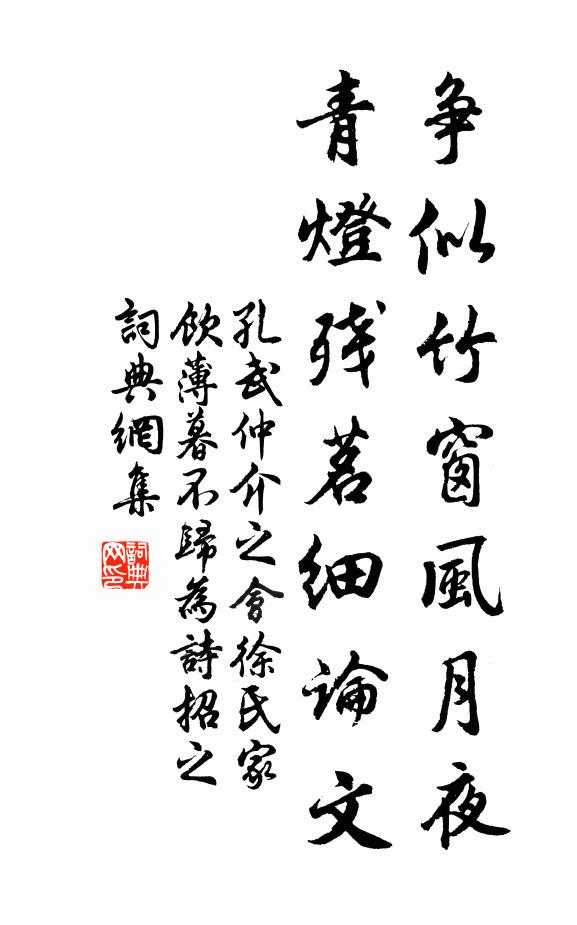 争似竹窗風月夜
青燈残茗細論文
孔武仲介之會徐氏家
飲薄暮不歸為詩招之
詞典網集
詞典
网印